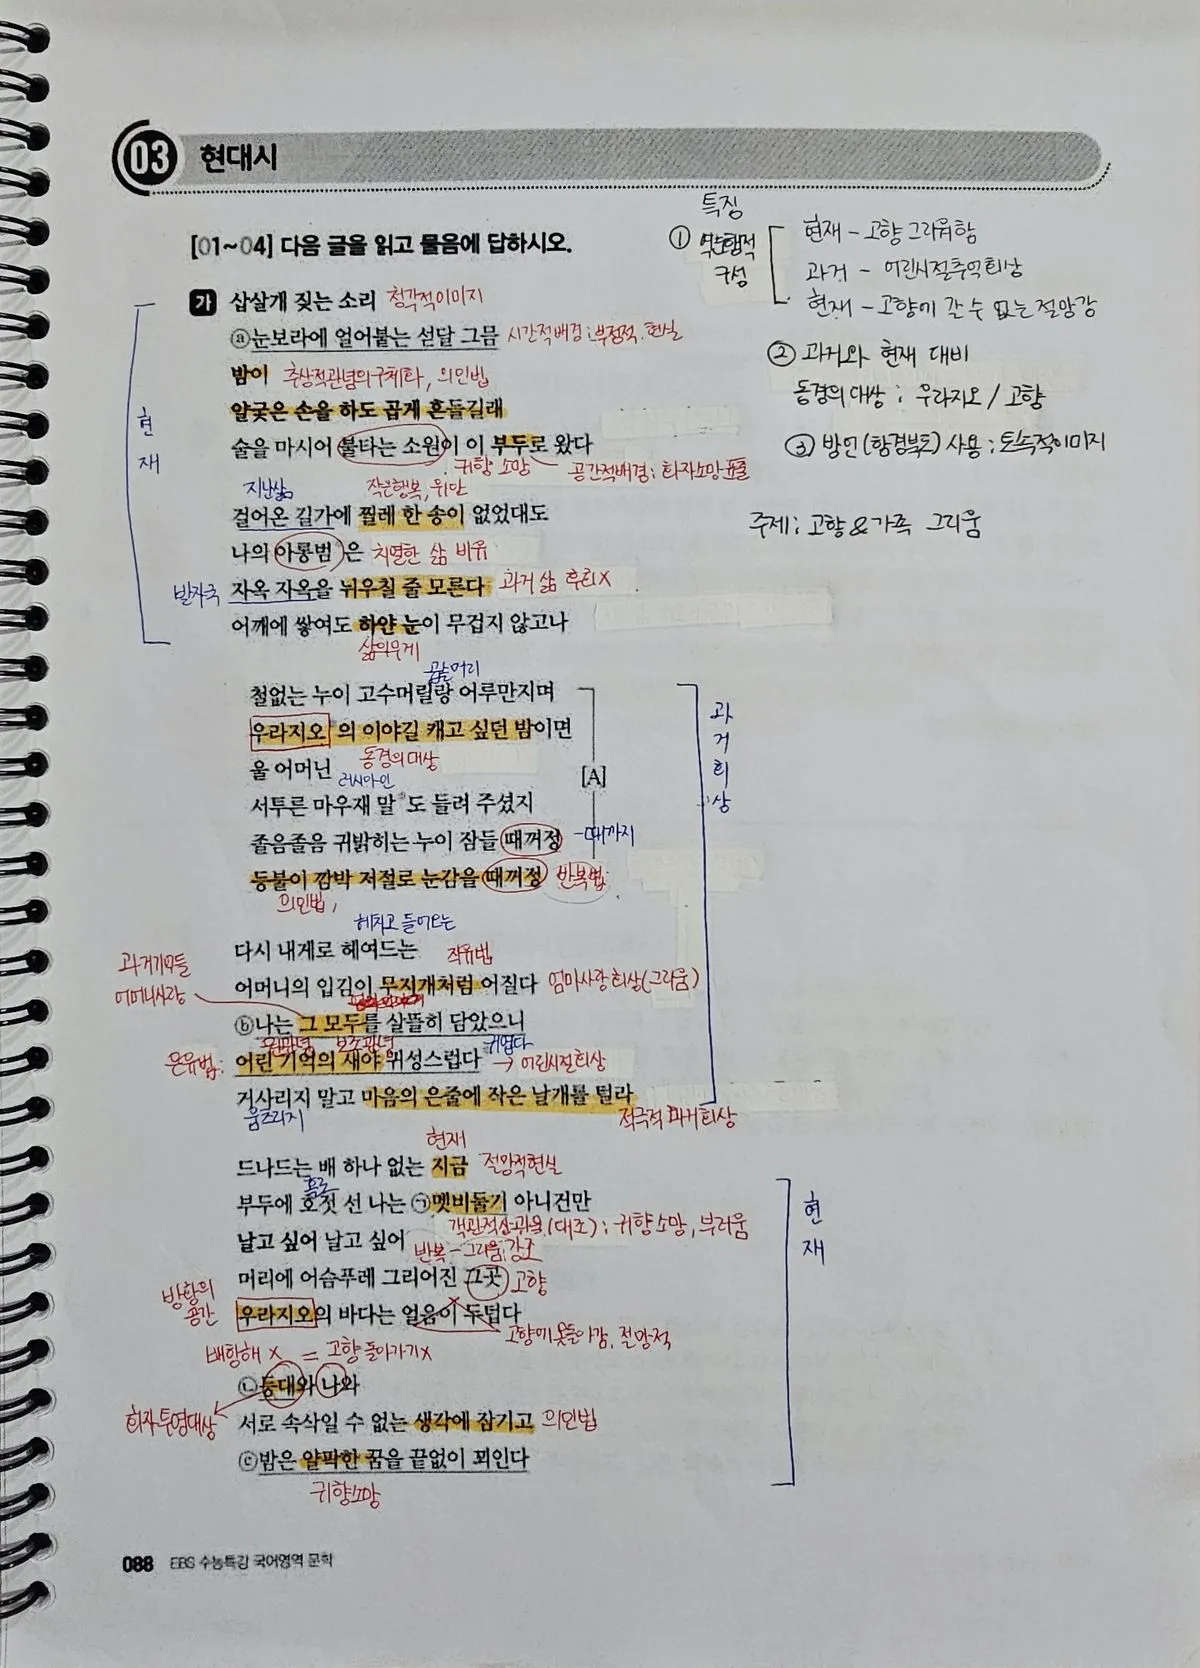 03 현대시
특징
① 역순행적 구성
현재 - 고향 그리워함
과거 - 어린시절추억 회상
현재 - 고향에 갈 수 없는 절망감
② 과거와 현재 대비
동경의 대상 : 우라지오 / 고향
③ 방언(함경북도) 사용 : 토속적이미지
주제 : 고향 & 가족 그리움
[01~04] 다음 글을 읽고 물음에 답하시오.
현재
가 삽살개 짖는 소리 청각적이미지
ⓐ눈보라에 얼어붙는 섣달 그믐 시간적배경 : 부정적 현실
밤이 추상적관념의구체화, 의인법
얄궂은 손을 하도 곱게 흔들길래
술을 마시어 불타는 소원이 이 부두로 왔다
귀향 소망 공간적배경 : 화자소망표출
지난삶 작은행복, 위안
걸어온 길가에 찔레 한 송이 없었대도
나의 아롱범은 치열한 삶 비유
발자국 자옥 자옥을 뉘우칠 줄 모른다 과거 삶 후회X
어깨에 쌓여도 하얀 눈이 무겁지 않고나
삶의무게
곱슬머리
과거회상
철없는 누이 고수머릴랑 어루만지며
우라지오의 이야길 캐고 싶던 밤이면
동경의 대상
울 어머닌
러시아인
[A]
서투른 마우재 말*도 들려 주셨지
졸음졸음 귀밝히는 누이 잠들 때꺼정 -때까지
등불이 깜박 저절로 눈감을 때꺼정 반복법
의인법,
헤치고 들어오는
다시 내게로 헤여드는 직유법
과거기억들
어머니사랑
어머니의 입김이 무지개처럼 어질다 엄마사랑 회상(그리움)
ⓑ나는 그 모두를 살뜰히 담았으니
원관념 보조관념 귀엽다
은유법: 어린 기억의 새야 귀성스럽다 → 어린시절회상
거사리지 말고 마음의 은줄에 작은 날개를 털라
움츠리지 적극적 과거회상
현재
드나드는 배 하나 없는 지금 절망적현실
홀로
부두에 호젓 선 나는 ㉠멧비둘기 아니건만
객관적상관물(대조) : 귀향소망, 부러움
현재
날고 싶어 날고 싶어 반복 - 그리움 강조
머리에 어슴푸레 그리어진 그곳 고향
방황의
공간
우라지오의 바다는 얼음이 두텁다
고향에 못돌아감, 절망적
X = 고향 돌아가기X
㉡등대와 나와
화자투영대상 서로 속삭일 수 없는 생각에 잠기고 의인법
ⓒ밤은 얄팍한 꿈을 끝없이 꾀인다
귀향소망
088 EBS 수능특강 국어영역 문학